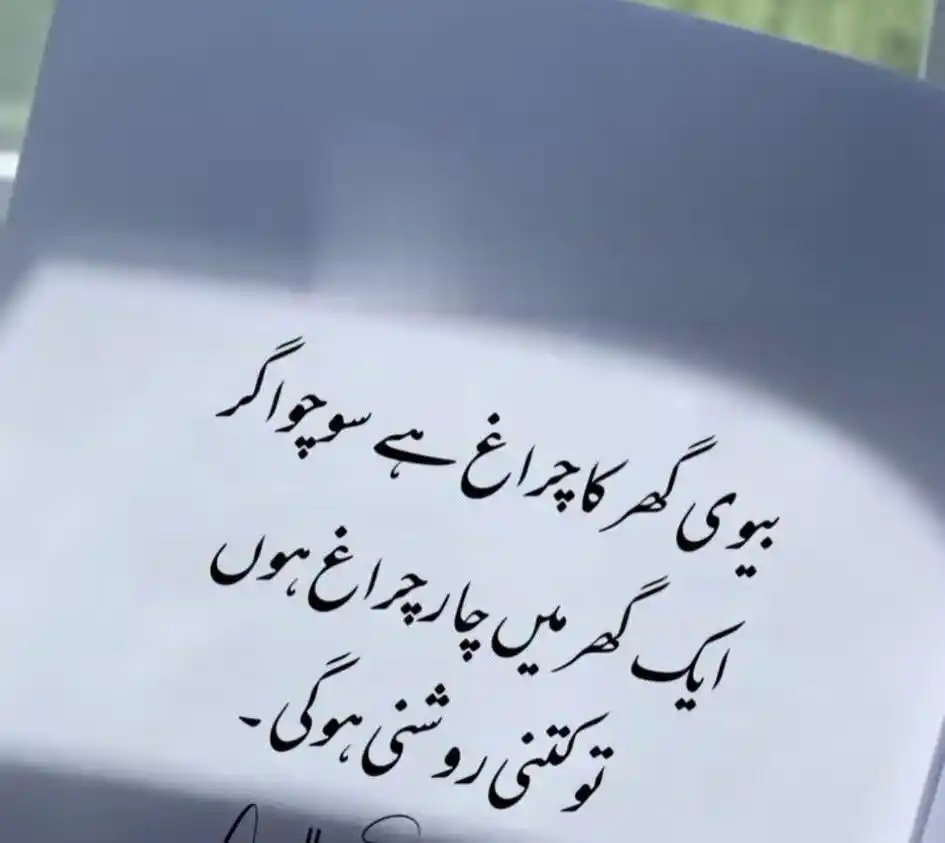 بیوی گھر کا چراغ ہے سوچو اگر
ایک گھر میں چار چراغ ہوں
تو کتنی روشنی ہوگی ۔